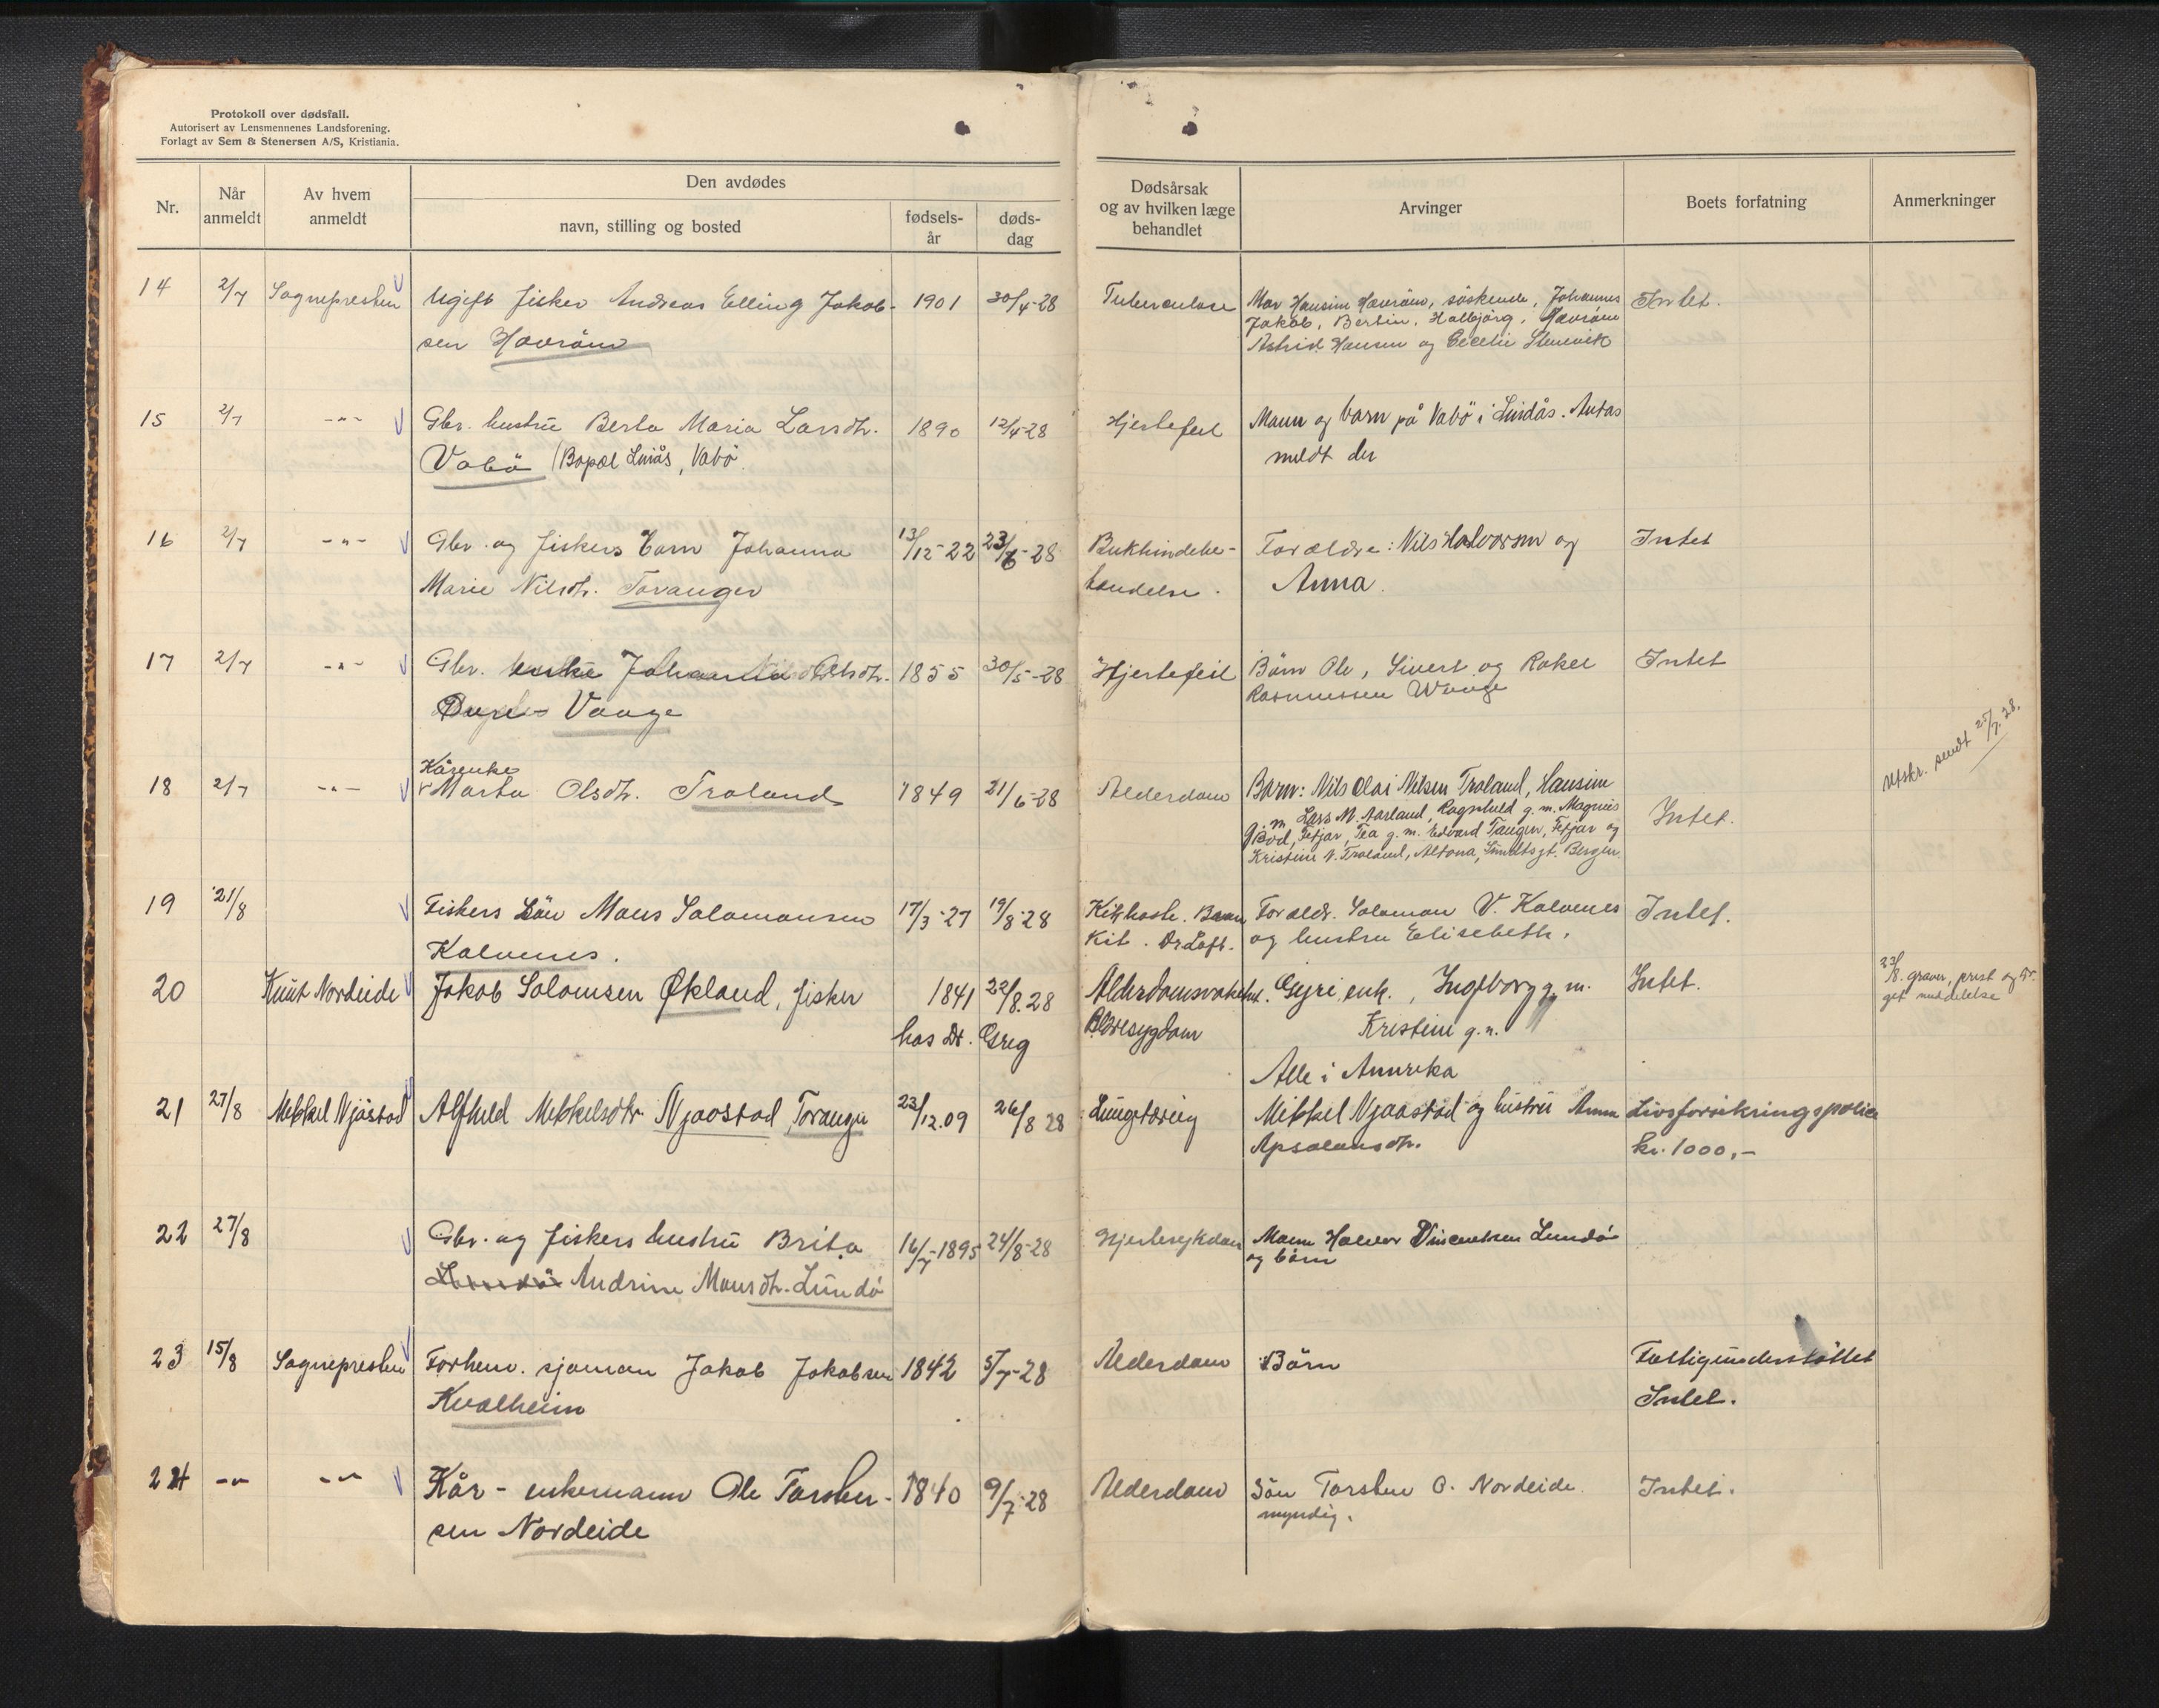 Protokoll over dødsfall.
Autorisert av Lensmennenes Landsforening.
Forlagt av Sem & Stenersen A/S, Kristiania.
Nr.
Når anmeldt
Av hvem anmeldt
Den avdødes
navn, stilling og bosted
fødsels-år
døds-dag
Dødsårsak og av hvilken læge behandlet
Arvinger
Boets forfatning
Anmerkninger
14 2/7 Sognepresten Ugift fisker Andreas Elling Jakob- 1901 30/4-28 Tuberculose Mor Hansine Havråm, söskende, Johannes Intet.
sen Havråm Jakob, Bertin, Halbjörg, Havråm
Astrid Hansen og Cecelie Stensvik
15 2/7 -"- Gbr. hustru Berta Maria Larsdtr. 1890 12/4-28 Hjertefeil Mann og barn på Vabö i Lindås. Antas
Vabö (Bopæl Linås, Vabö. meldt der
16 2/7 -"- Gbr. og fiskers barn Johanna 13/12-22 23/6-28 Bukhindebe- Forældre: Nils Halvorsen og Intet
Marie Nilsdtr. Toranger tændelse. Anna.
17 2/7 -"- Gbr. enke Johanna Olsdtr. 1855 30/5-28 Hjertefeil Börn Ole, Sivert og Rakel Intet
Vaage Rasmussen Waage
18 2/7 -"- Kårenke
Marta Olsdtr. Træland 1849 21/6-28 Alderdom Barn: Nils Olai Nilsen Træland, Hansine Utskr. sendt 25/7.28.
g.m. Lars M. Aarland, Ragnhild g.m. Magnus
Bød, Fitjar, Tea g.m. Edvard Tangen, Fitjar og Intet.
Kristine N. Træland, Altona, Smidtsgt. Bergen.
19 21/8 Fiskers sön Mons Salamonsen 17/3-27 19/8-28 Kikhoste. Foreldr. Salamon V. Kalvenes Intet.
Kalvenes. Dr Loft. og hustru Elisebeth.
20 Knut Nordeide Jakob Salomsen Økland, fisker 1841 22/8.28 Alderdomssvakhet. Gyri, enk., Ingeborg g.m. Intet. 23/8. graver, prest og
hos Dr. Greg Blæresygdom Kristine g.m. git meddelelse
Alle i Amerika
21 27/8 Mikkel Njåstad Alfhild Mikkelsdtr Njaastad Toranger 23/12.09 26/8 28 Lungetæring Mikkel Njaastad og hustru Anna Livsforsikringspolice
Apsalonsdtr. kr. 1000,-
22 27/8 Gbr. og fiskers hustru Brita 16/7-1895 24/8-28 Hjertesykdom Mann Halvor Vincentsen Lundö
Andrine Monsdtr. Lundö og börn
23 15/8 Sognepresten Forhenv. sjömann Jakob Jakobsen 1842 5/7-28 Alderdom Börn Fattigunderstöttet
Kvalheim Intet.
24 -"- -"- Kår- enkemann Ole Torsten- 1840 9/7-28 Alderdom Sön Torsten O. Nordeide Intet.
sen Nordeide myndig.